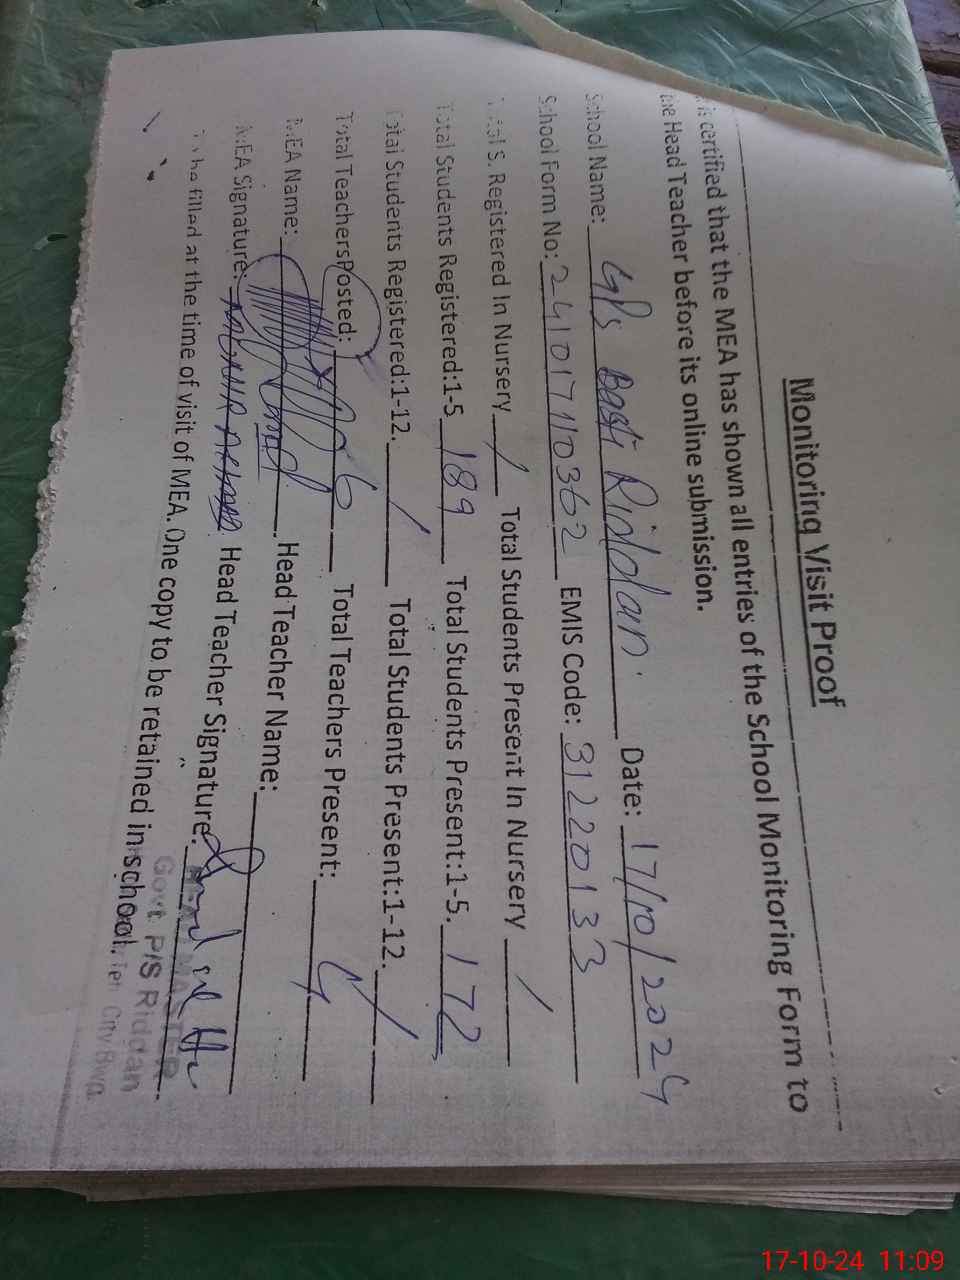 Monitoring Visit Proof
is certified that the MEA has shown all entries of the School Monitoring Form to
the Head Teacher before its online submission.
School Name: G/Ps Basti Riddan. Date: 17/10/2024
School Form No: 241017110362 EMIS Code: 31220133
S. Registered In Nursery / Total Students Present In Nursery /
Total Students Registered:1-5 189 Total Students Present:1-5. 172
Total Students Registered:1-12. / Total Students Present:1-12. /
Total TeachersPosted: 6 Total Teachers Present: 4
MEA Name: Head Teacher Name:
MEA Signature: Head Teacher Signature:
be filled at the time of visit of MEA. One copy to be retained in school.
HEAD MASTER
Govt. P/S Riddan
City Bwp.
17-10-24 11:09